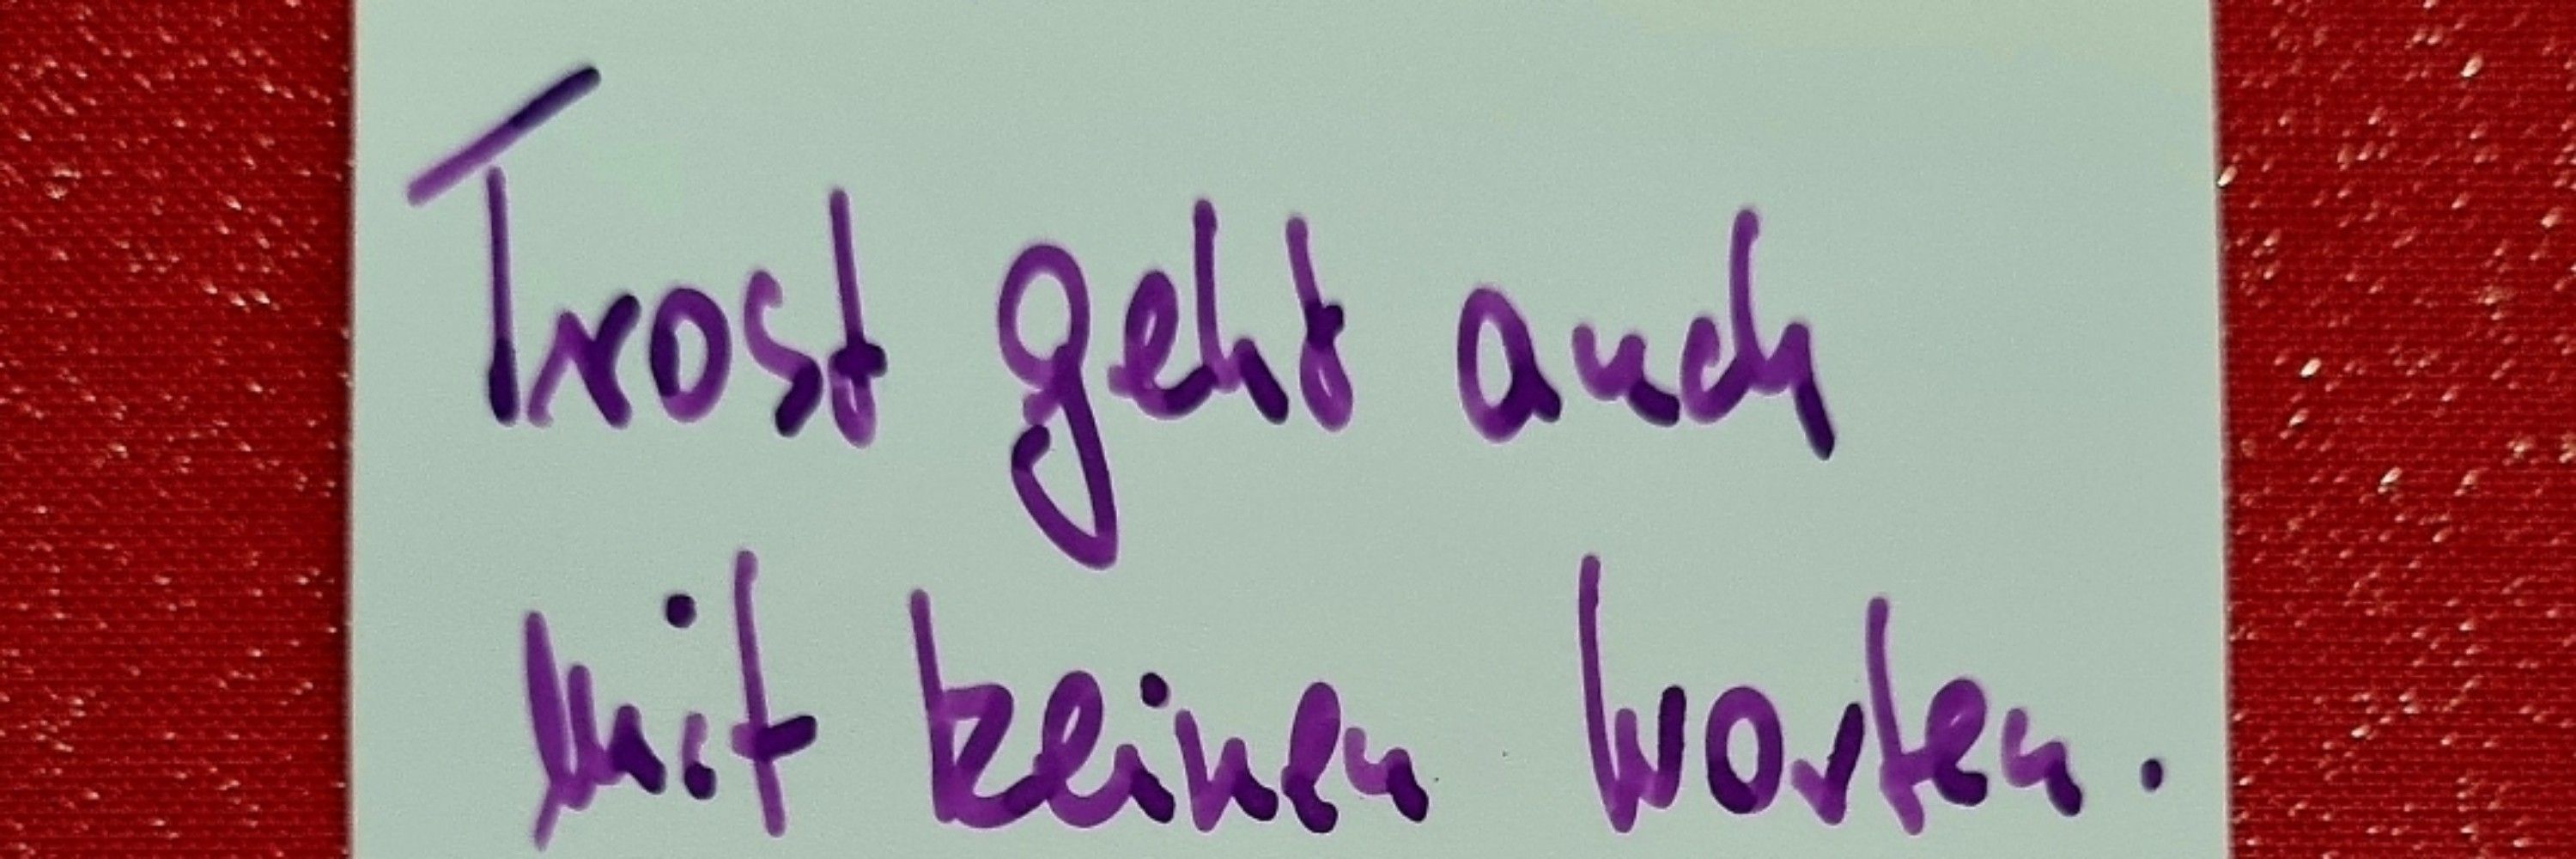 Trost geht auch
mit keinen Worten.